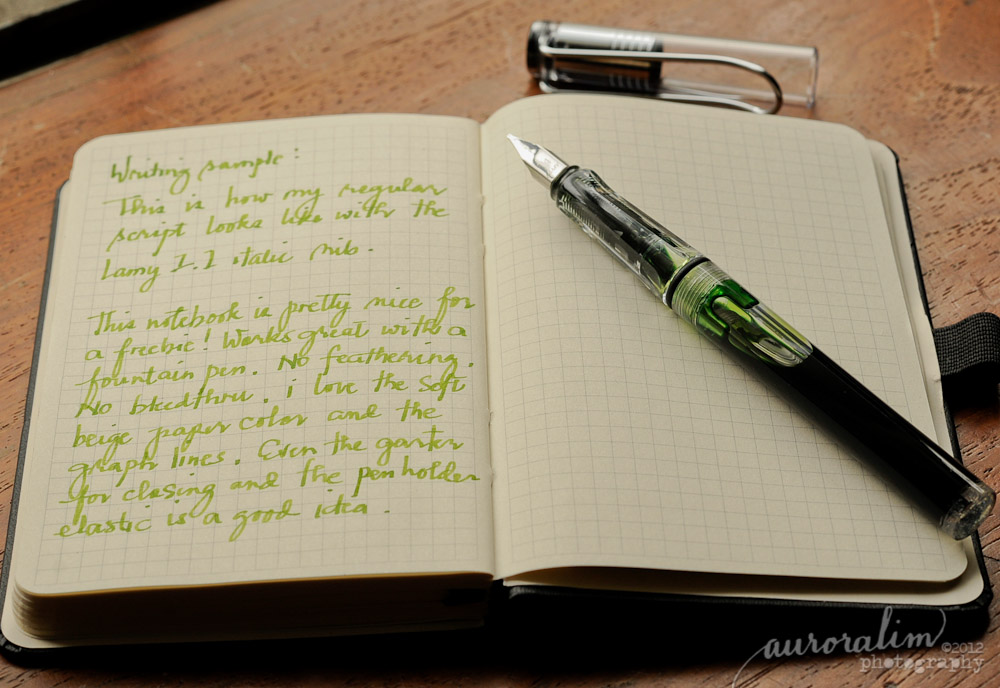 Writing sample:
This is how my regular
script looks like with the
Lamy 1.1 italic nib.
This notebook is pretty nice for
a freebie! Works great with a
fountain pen. No feathering.
No bleedthru. i love the soft
beige paper color and the
graph lines. Even the garter
for closing and the pen holder
elastic is a good idea.
auroralim
©2012
photography